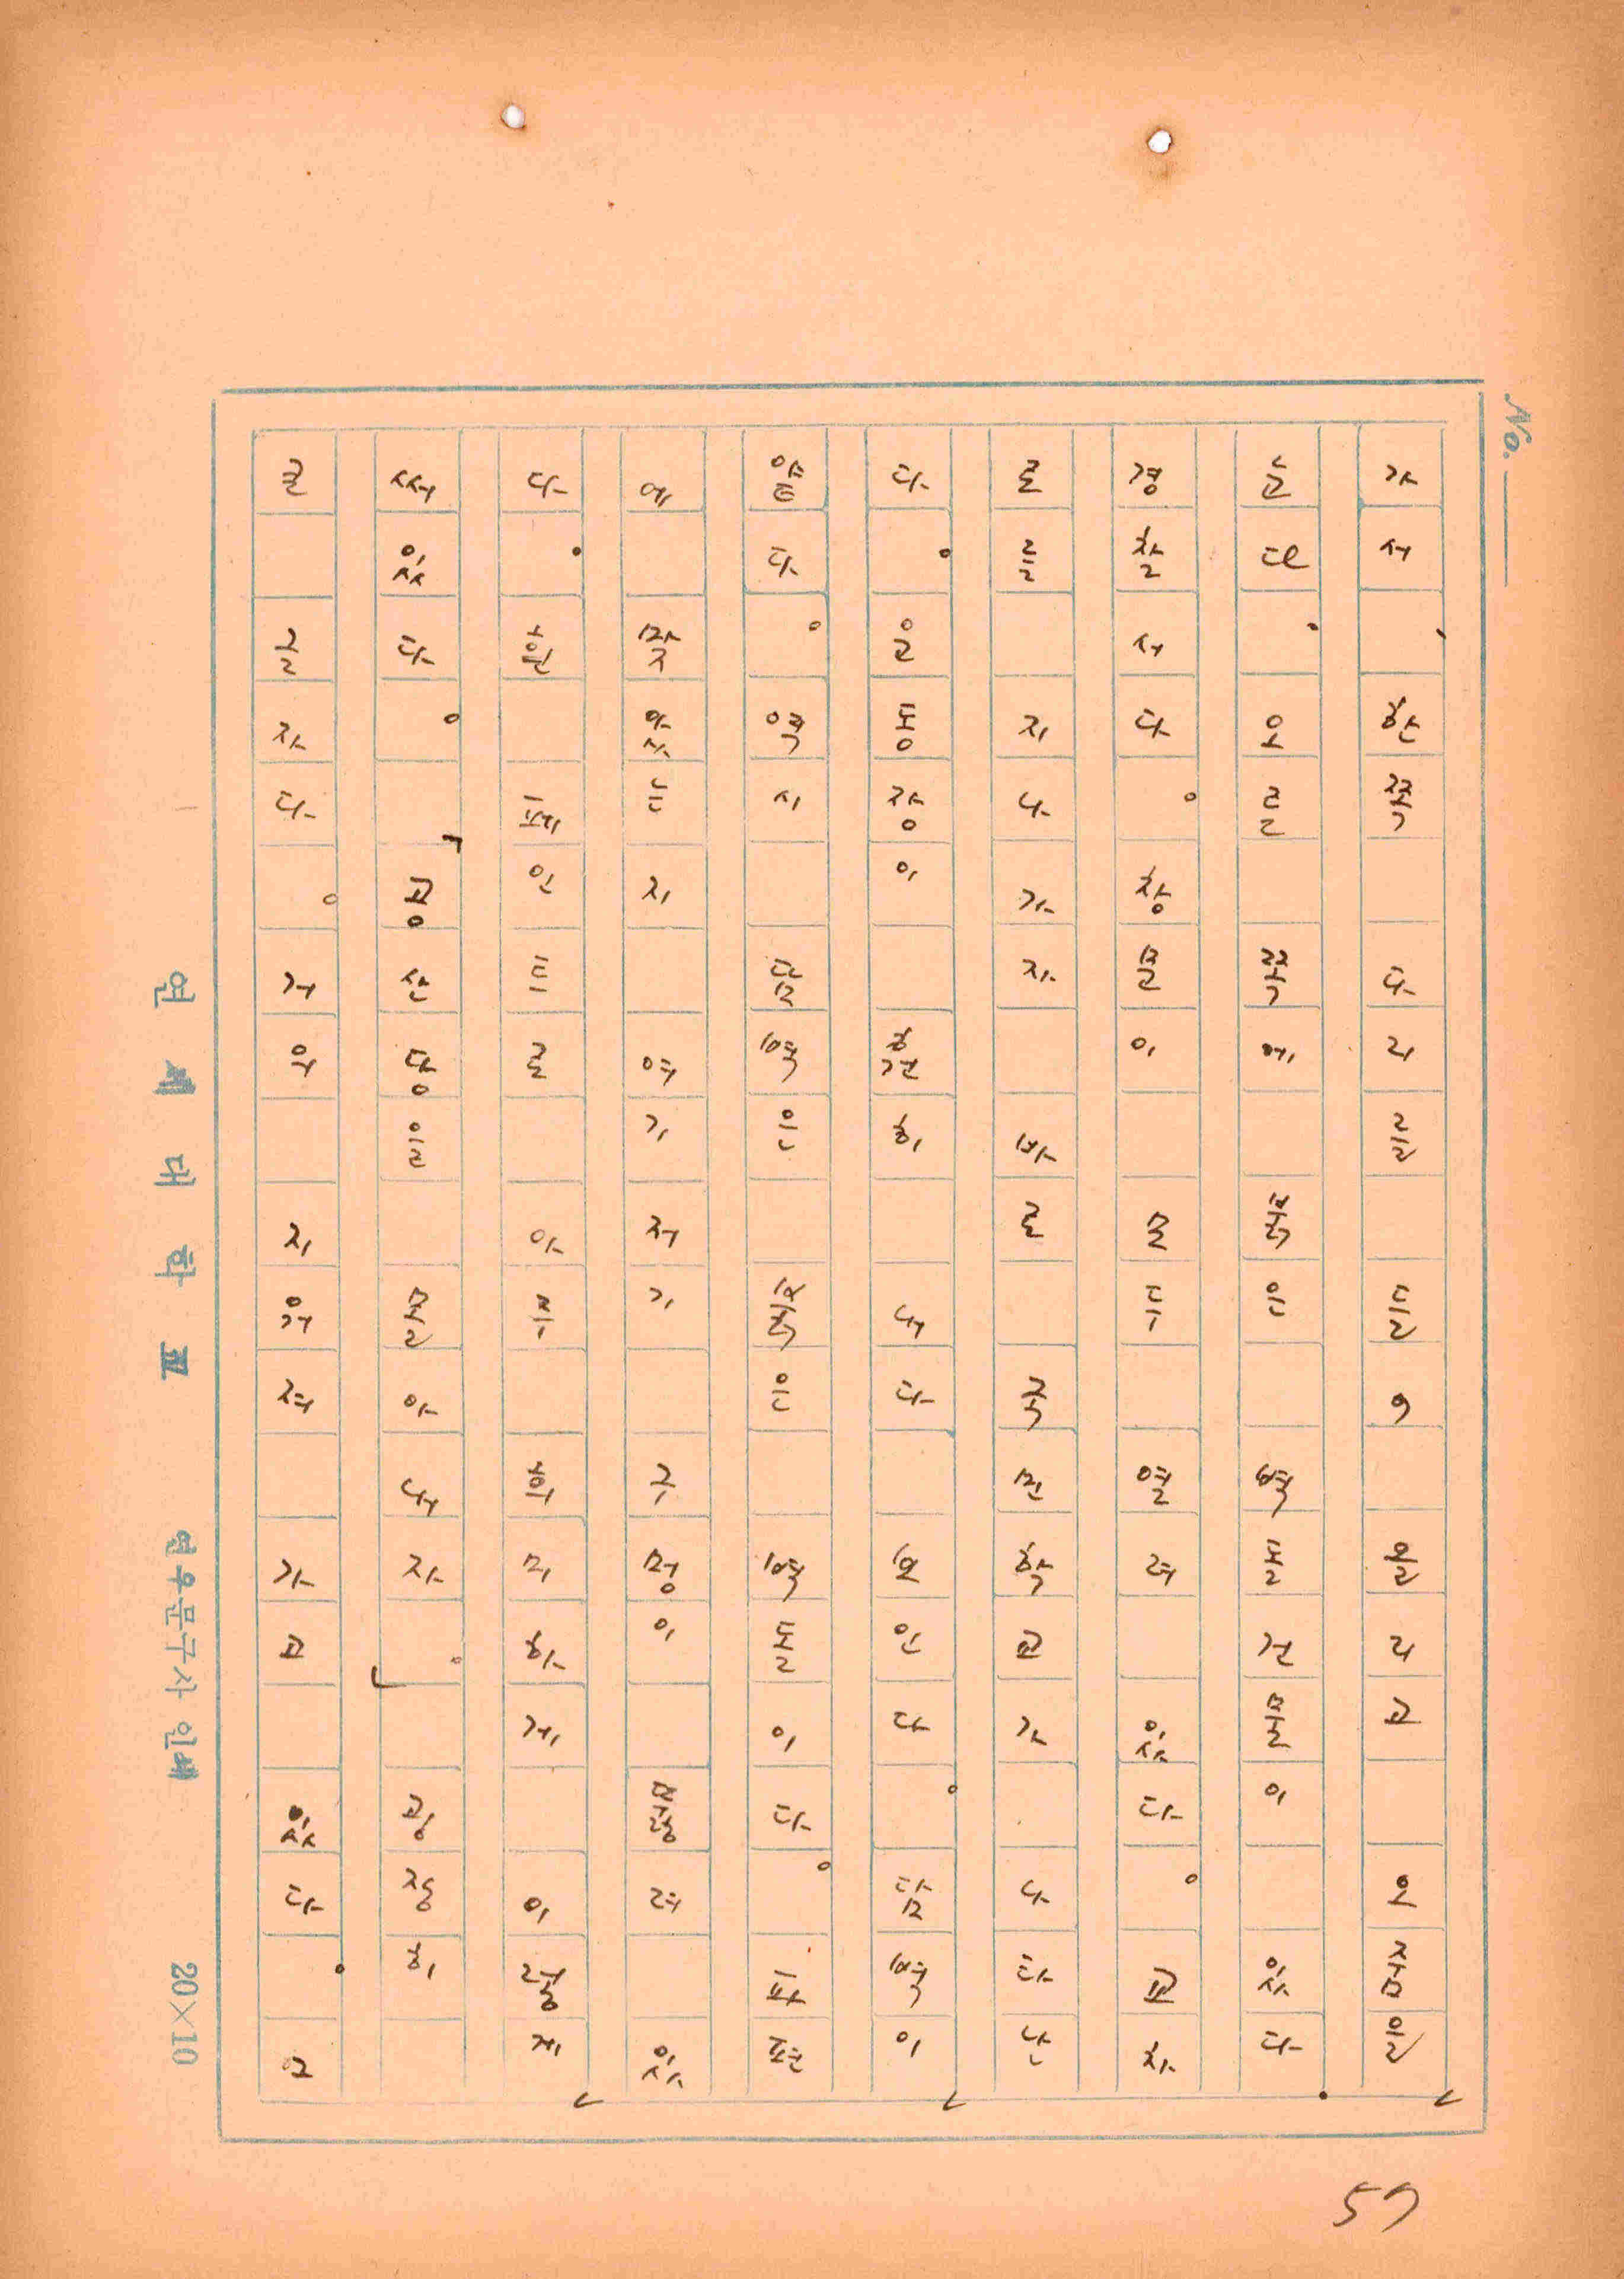 No.
가서, 한쪽 다리를 들어 올리고 오줌을
눈다. 오른쪽에 붉은 벽돌 건물이 있다.
경찰서다. 창문이 모두 열려 있다. 교차
로를 지나가자 바로 국민학교가 나타난
다. 운동장이 훤히 내다 보인다. 담벽이
얕다. 역시 담벽은 붉은 벽돌이다. 포탄
에 맞았는지 여기저기 구멍이 뚫려 있
다. 흰 페인트로 아주 희미하게 이렇게
써 있다. 「공산당을 몰아내자.」 굉장히
큰 글자다. 거의 지워져 가고 있다. 그
연세대학교 연우문구사 인쇄 20×10
57